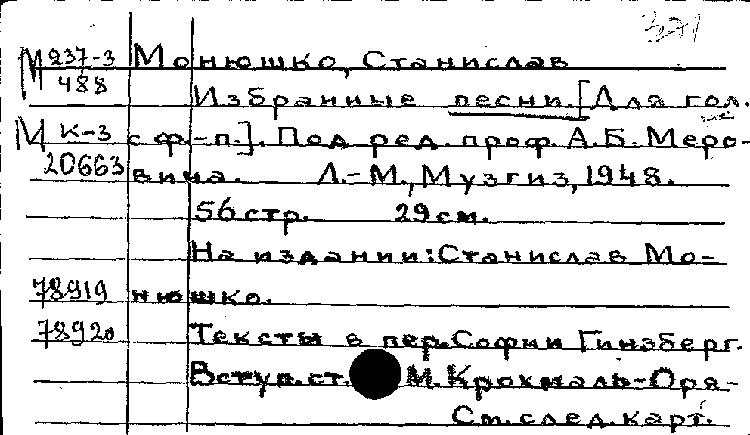 371
М 237-3 Монюшко, Станислав
488
Избранные песни. [Для гол.
М К-3 с ф.-п.]. Под ред. проф. А.Б. Меро-
20663 вича. Л.-М., Музгиз, 1948.
56 стр. 29 см.
На издании: Станислав Мо-
78919 нюшко.
78920 Тексты в пер. Софии Гинзберг.
Вступ. ст. М. Крохмаль-Оря-
См. след. карт.